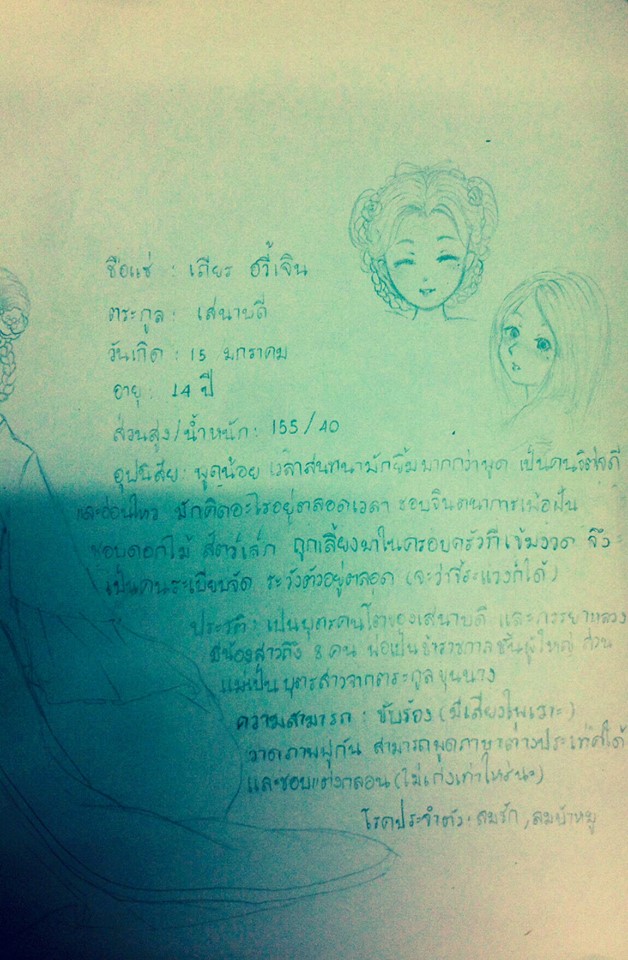 ชื่อแซ่ : เถียร อวี้เจิน
ตระกูล : เสนาบดี
วันเกิด : 15 มกราคม
อายุ : 14 ปี
ส่วนสูง/น้ำหนัก : 155/40
อุปนิสัย : พูดน้อย เวลาสนทนามักยิ้มมากกว่าพูด เป็นคนจิตใจดี
และอ่อนไหว มักคิดอะไรอยู่ตลอดเวลา ชอบจินตนาการเพ้อฝัน
ชอบดอกไม้ สัตว์เล็ก ถูกเลี้ยงมาในครอบครัวที่เข้มงวด จึง
เป็นคนระเบียบจัด ระวังตัวอยู่ตลอด (จะว่าขี้ระแวงก็ได้)
ประวัติ : เป็นบุตรคนโตของเสนาบดี และภรรยาหลวง
มีน้องสาวถึง 8 คน พ่อเป็นข้าราชการชั้นผู้ใหญ่ ส่วน
แม่เป็นบุตรสาวจากตระกูลขุนนาง
ความสามารถ : ขับร้อง (มีเสียงไพเราะ)
วาดภาพพู่กัน สามารถพูดภาษาต่างประเทศได้
และชอบแต่งกลอน (ไม่เก่งเท่าไหร่นะ)
โรคประจำตัว : ลมรัก, ลมบ้าหมู